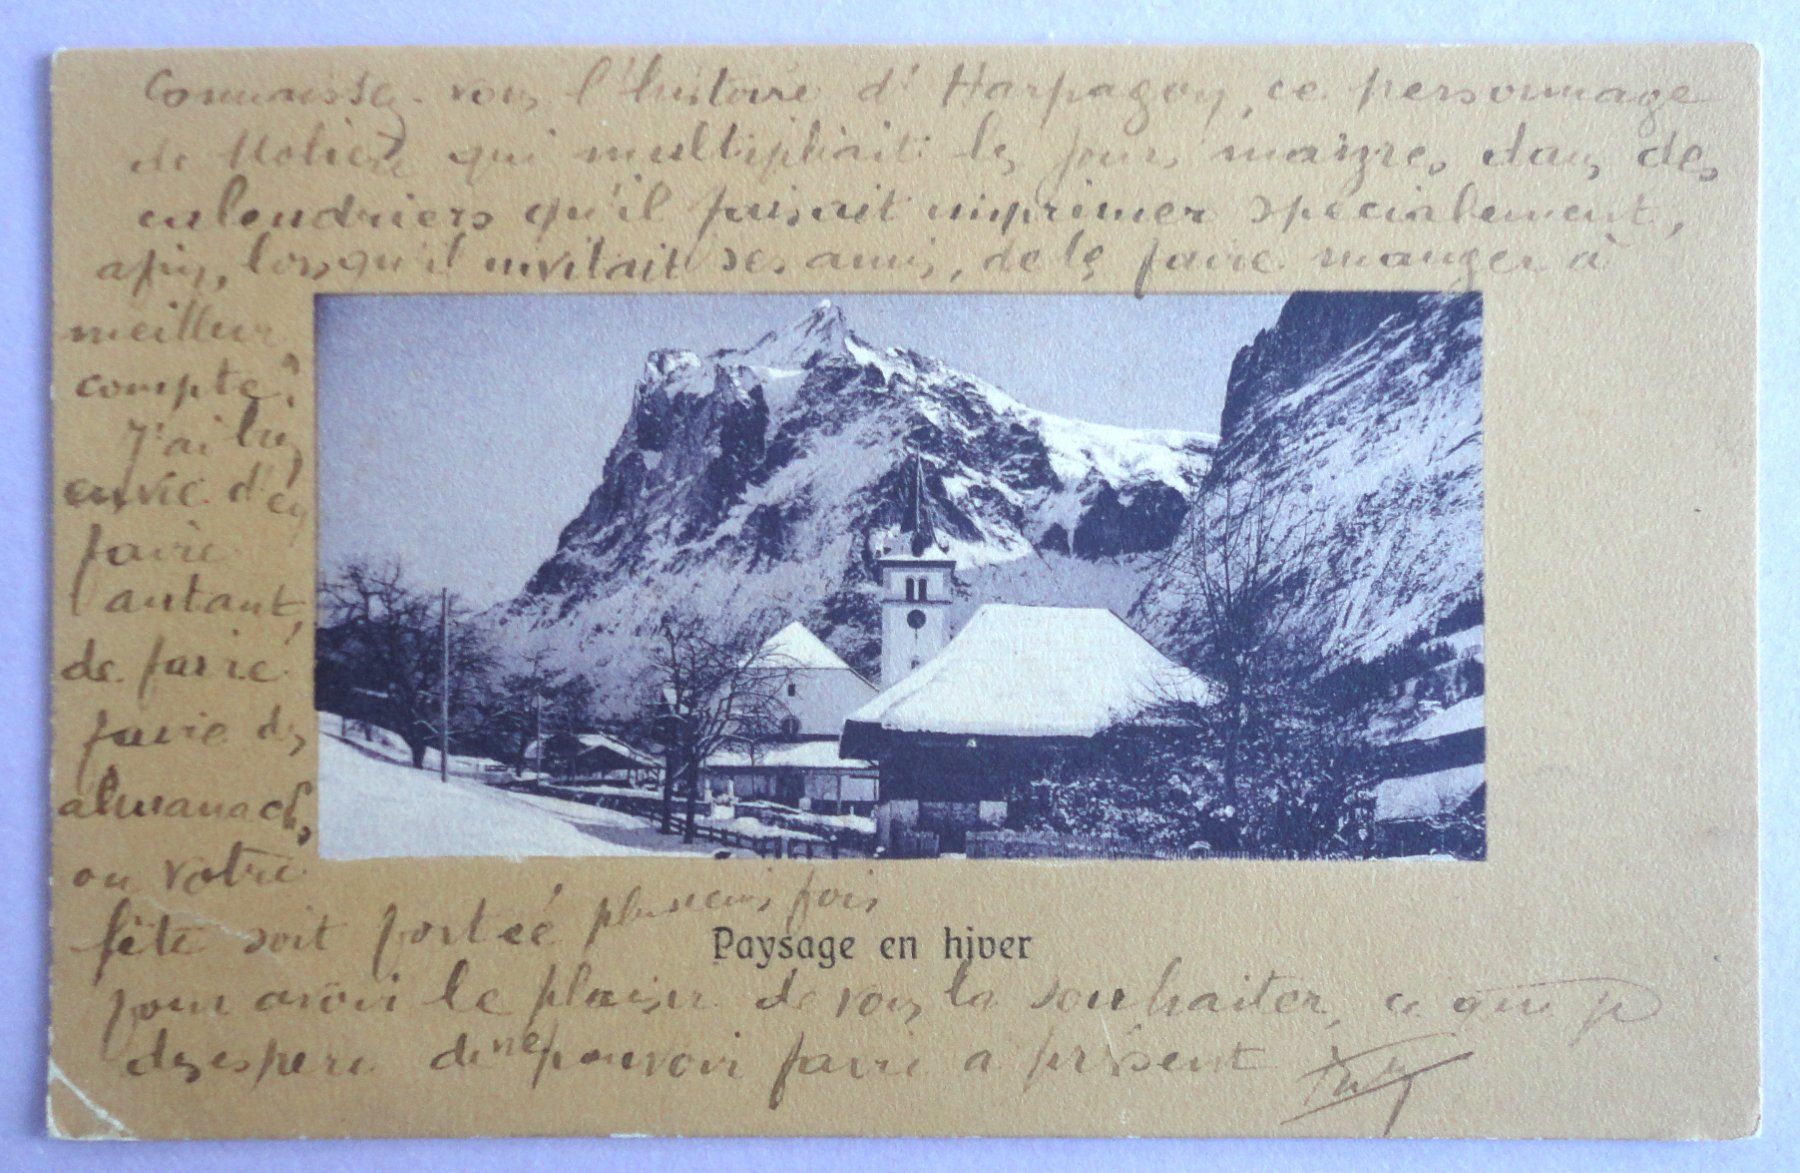 Connaissez-vous l'histoire d'Harpagon, ce personnage
de Molière qui multipliait les jours maigres dans des
calendriers qu'il faisait imprimer spécialement,
afin, lorsqu'il invitait ses amis, de les faire manger à
meilleur
compte ?
J'ai bien
envie d'en
faire
autant,
de faire
faire des
almanachs,
ou votre
fête soit portée plusieurs fois
Paysage en hiver
pour avoir le plaisir de vous la souhaiter, ce que je
desespere de ne pouvoir faire a présent